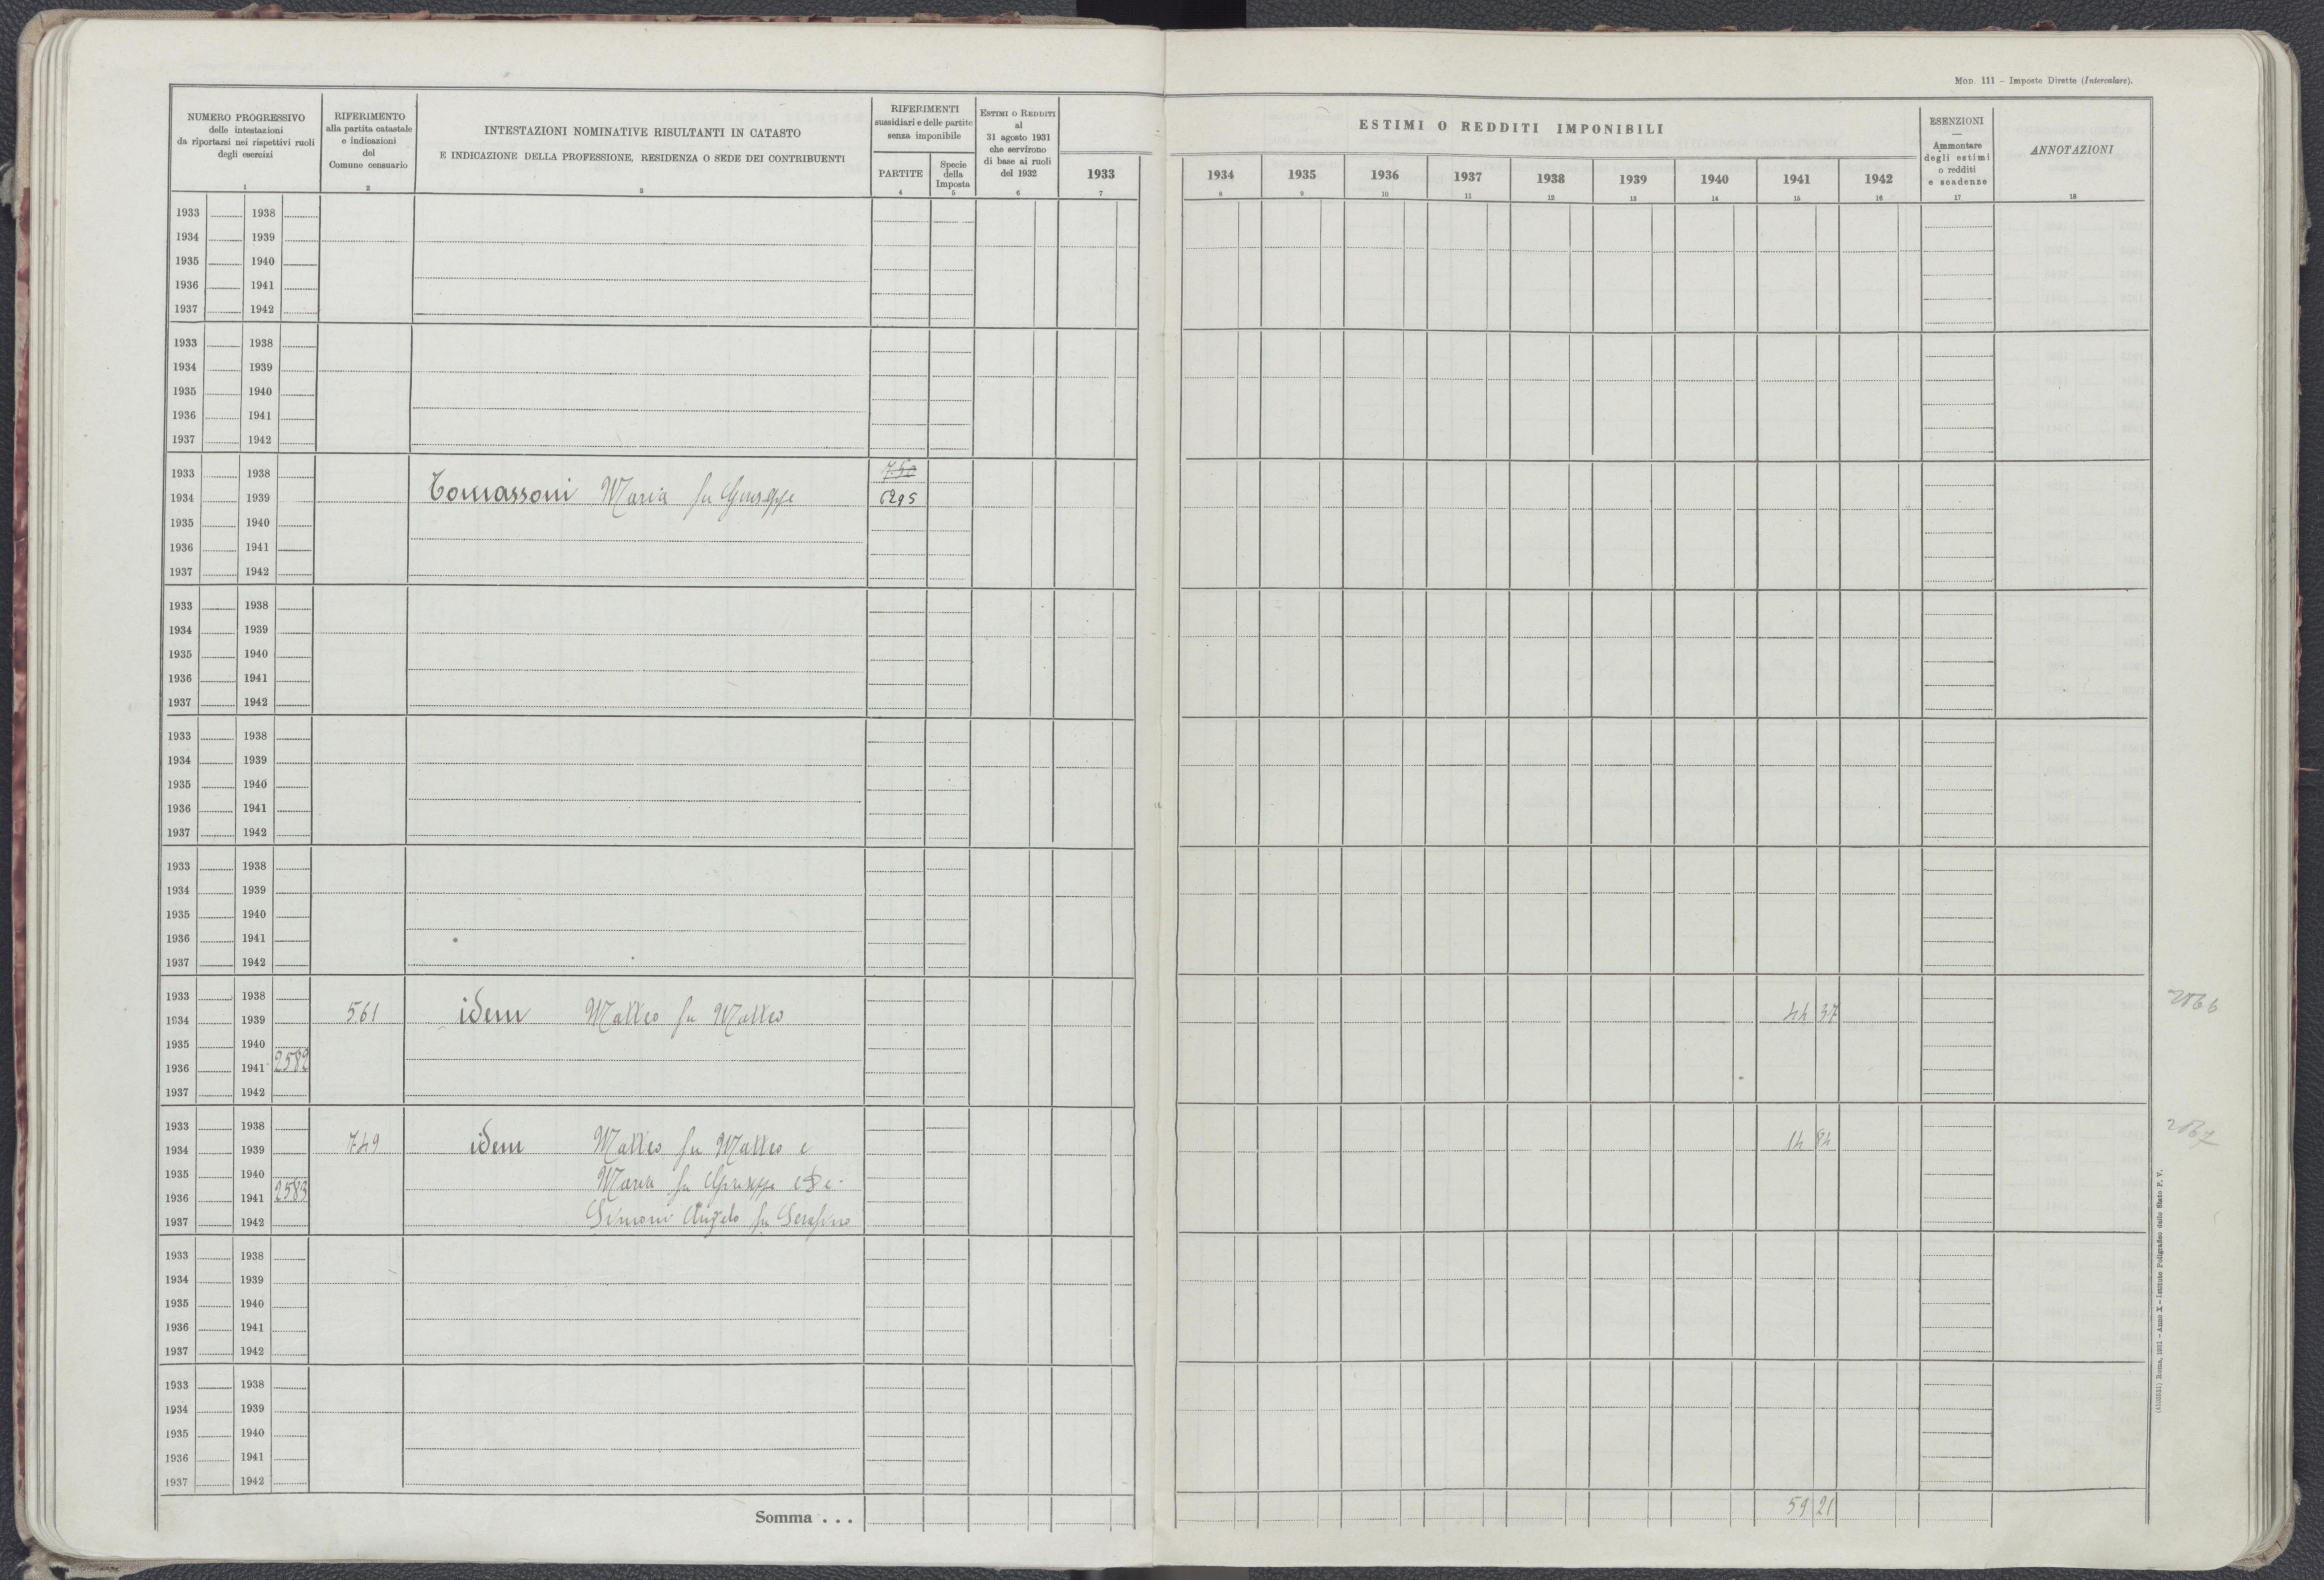 MOD. 111 – Imposte Dirette (Intercalare).
NUMERO PROGRESSIVO
delle intestazioni
da riportarsi nei rispettivi ruoli
degli esercizi
1
RIFERIMENTO
alla partita catastale
e indicazioni
del
Comune censuario
2
INTESTAZIONI NOMINATIVE RISULTANTI IN CATASTO
E INDICAZIONE DELLA PROFESSIONE, RESIDENZA O SEDE DEI CONTRIBUENTI
3
RIFERIMENTI
sussidiari e delle partite
senza imponibile
PARTITE
4
Specie
della
Imposta
5
ESTIMI O REDDITI
al
31 agosto 1931
che servirono
di base ai ruoli
del 1932
6
1933
7
ESTIMI O REDDITI IMPONIBILI
1934 1935 1936 1937 1938 1939 1940 1941 1942
8 9 10 11 12 13 14 15 16
ESENZIONI
—
Ammontare
degli estimi
o redditi
e scadenze
17
ANNOTAZIONI
18
1933 1938
1934 1939
1935 1940
1936 1941
1937 1942
1933 1938
1934 1939
1935 1940
1936 1941
1937 1942
1933 1938 750
1934 1939 Tomassoni Maria fu Giuseppe 6295
1935 1940
1936 1941
1937 1942
1933 1938
1934 1939
1935 1940
1936 1941
1937 1942
1933 1938
1934 1939
1935 1940
1936 1941
1937 1942
1933 1938
1934 1939
1935 1940
1936 1941
1937 1942
1933 1938
1934 1939 561 idem Matteo fu Matteo 44 37
1935 1940
1936 1941 2582
1937 1942
1933 1938
1934 1939 749 idem Matteo fu Matteo e 14 84
1935 1940 Maria fu Giuseppe e De
1936 1941 2583
1937 1942 Simoni Angelo fu Serafino
1933 1938
1934 1939
1935 1940
1936 1941
1937 1942
1933 1938
1934 1939
1935 1940
1936 1941
1937 1942
Somma . . . 59 21